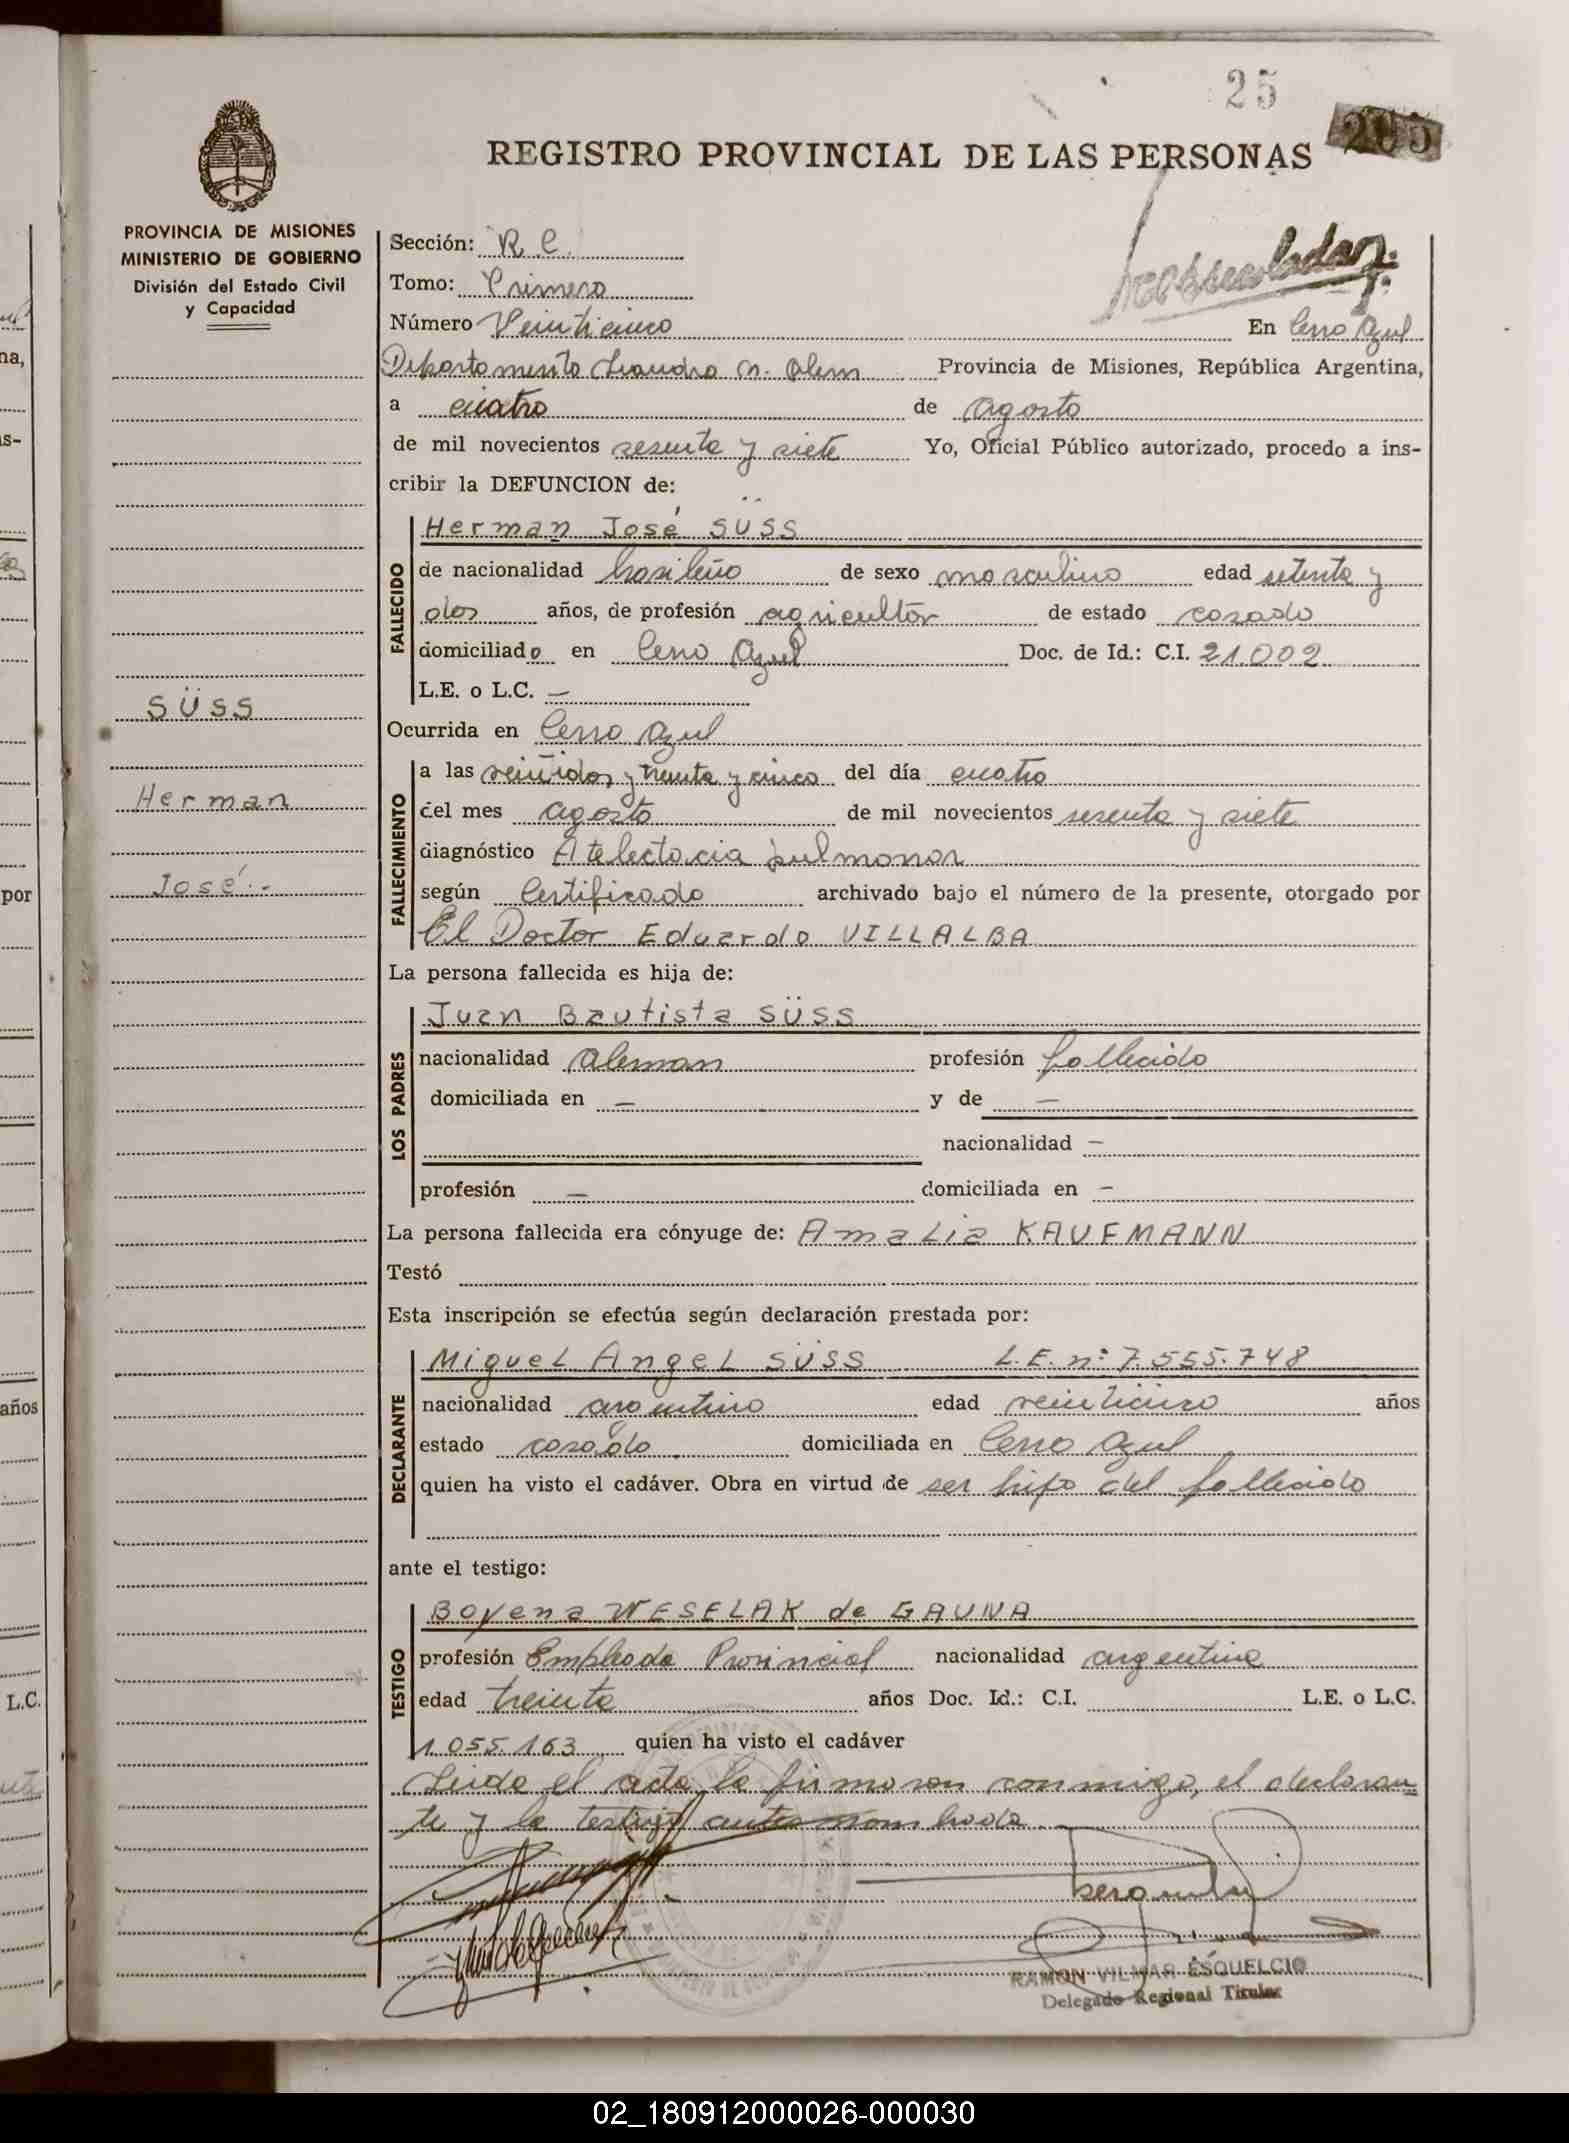 25
205
REGISTRO PROVINCIAL DE LAS PERSONAS
PROVINCIA DE MISIONES
MINISTERIO DE GOBIERNO
División del Estado Civil
y Capacidad
SÜSS
Herman
José.-
Sección: R C.
Tomo: Primero
Número Veinticinco En Cerro Azul
Departamento Leandro N. Alem Provincia de Misiones, República Argentina,
a cuatro de Agosto
de mil novecientos sesenta y siete Yo, Oficial Público autorizado, procedo a ins-
cribir la DEFUNCION de:
Herman José SÜSS
FALLECIDO
de nacionalidad brasileño de sexo masculino edad setenta y
dos años, de profesión agricultor de estado casado
domiciliado en Cerro Azul Doc. de Id.: C.I. 21.002
L.E. o L.C. —
Ocurrida en Cerro Azul
FALLECIMIENTO
a las veintidos y treinta y cinco del día cuatro
del mes agosto de mil novecientos sesenta y siete
diagnóstico Atelectacia pulmonar
según Certificado archivado bajo el número de la presente, otorgado por
El Doctor Eduardo VILLALBA
La persona fallecida es hija de:
LOS PADRES
Juan Bautista SÜSS
nacionalidad Aleman profesión fallecido
domiciliada en — y de —
nacionalidad —
profesión — domiciliada en —
La persona fallecida era cónyuge de: Amalia KAUFMANN
Testó
Esta inscripción se efectúa según declaración prestada por:
DECLARANTE
Miguel Angel SÜSS L.E. n: 7.555.748
nacionalidad argentino edad veinticinco años
estado casado domiciliada en Cerro Azul
quien ha visto el cadáver. Obra en virtud de ser hijo del fallecido
ante el testigo:
TESTIGO
Boyena WESELAK de GAUNA
profesión Empleada Provincial nacionalidad argentina
edad treinta años Doc. Id.: C.I. L.E. o L.C.
1.055.163 quien ha visto el cadáver
Leida el acta la firmaron conmigo, el declaran
te y la testigo antes nombrada
RAMON VILMAR ESQUELCIO
Delegado Regional Titular
na,
s-
por
años
L.C.
02_180912000026-000030